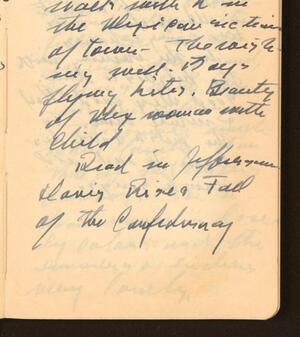 walk with it in
the Mexican section
of town - The wish-
ing well. Boys
flying kites. Beauty
of Mex woman with
Child
Read in Jefferson
Davis Rise & Fall
of the Confederacy